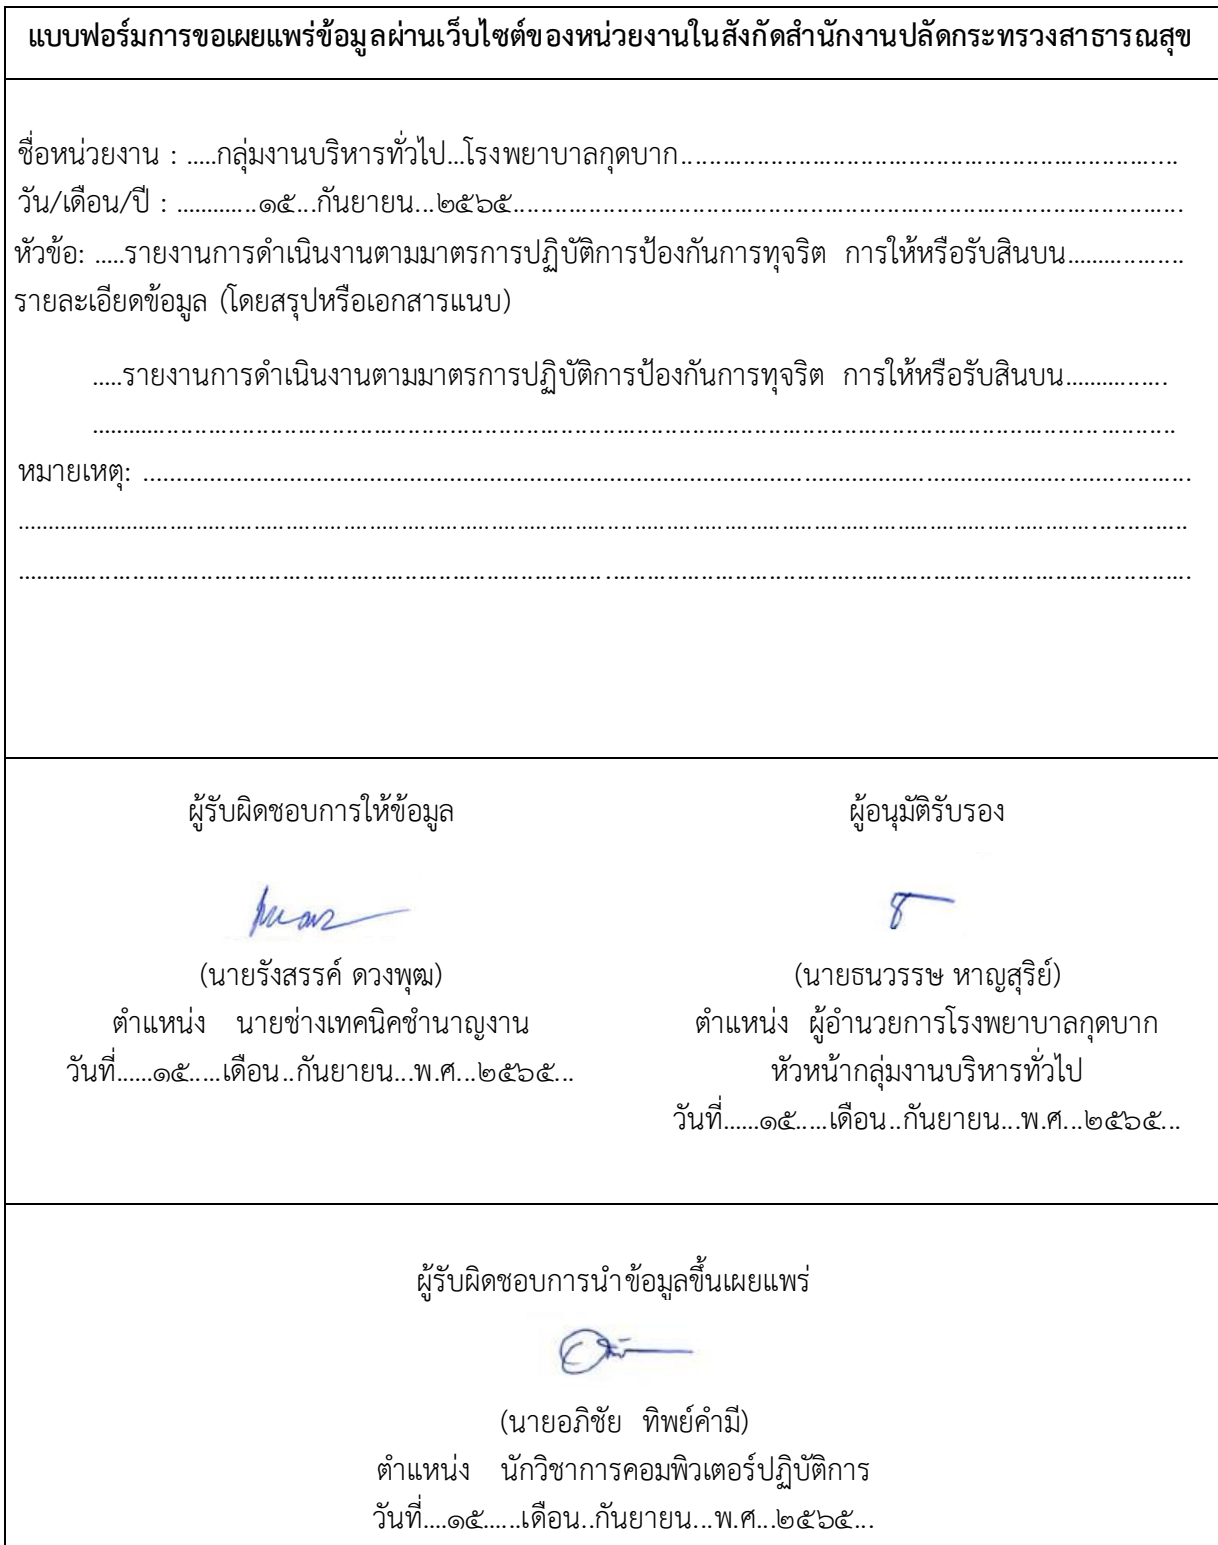 แบบฟอร์มการขอเผยแพร่ข้อมูลผ่านเว็บไซต์ของหน่วยงานในสังกัดสำนักงานปลัดกระทรวงสาธารณสุข
ชื่อหน่วยงาน : .....กลุ่มงานบริหารทั่วไป...โรงพยาบาลกุดบาก......................................................................
วัน/เดือน/ปี : .............๑๕...กันยายน...๒๕๖๕....................................................................................................
หัวข้อ: .....รายงานการดำเนินงานตามมาตรการปฏิบัติการป้องกันการทุจริต การให้หรือรับสินบน.................
รายละเอียดข้อมูล (โดยสรุปหรือเอกสารแนบ)
.....รายงานการดำเนินงานตามมาตรการปฏิบัติการป้องกันการทุจริต การให้หรือรับสินบน................
................................................................................................................................................
หมายเหตุ: ..........................................................................................................................................
................................................................................................................................................
................................................................................................................................................
ผู้รับผิดชอบการให้ข้อมูล ผู้อนุมัติรับรอง
(นายรังสรรค์ ดวงพุฒ) (นายธนวรรษ หาญสุริย์)
ตำแหน่ง นายช่างเทคนิคชำนาญงาน ตำแหน่ง ผู้อำนวยการโรงพยาบาลกุดบาก
วันที่......๑๕.....เดือน..กันยายน...พ.ศ...๒๕๖๕... หัวหน้ากลุ่มงานบริหารทั่วไป
วันที่......๑๕.....เดือน..กันยายน...พ.ศ...๒๕๖๕...
ผู้รับผิดชอบการนำข้อมูลขึ้นเผยแพร่
(นายอภิชัย ทิพย์คำมี)
ตำแหน่ง นักวิชาการคอมพิวเตอร์ปฏิบัติการ
วันที่....๑๕......เดือน..กันยายน...พ.ศ...๒๕๖๕...